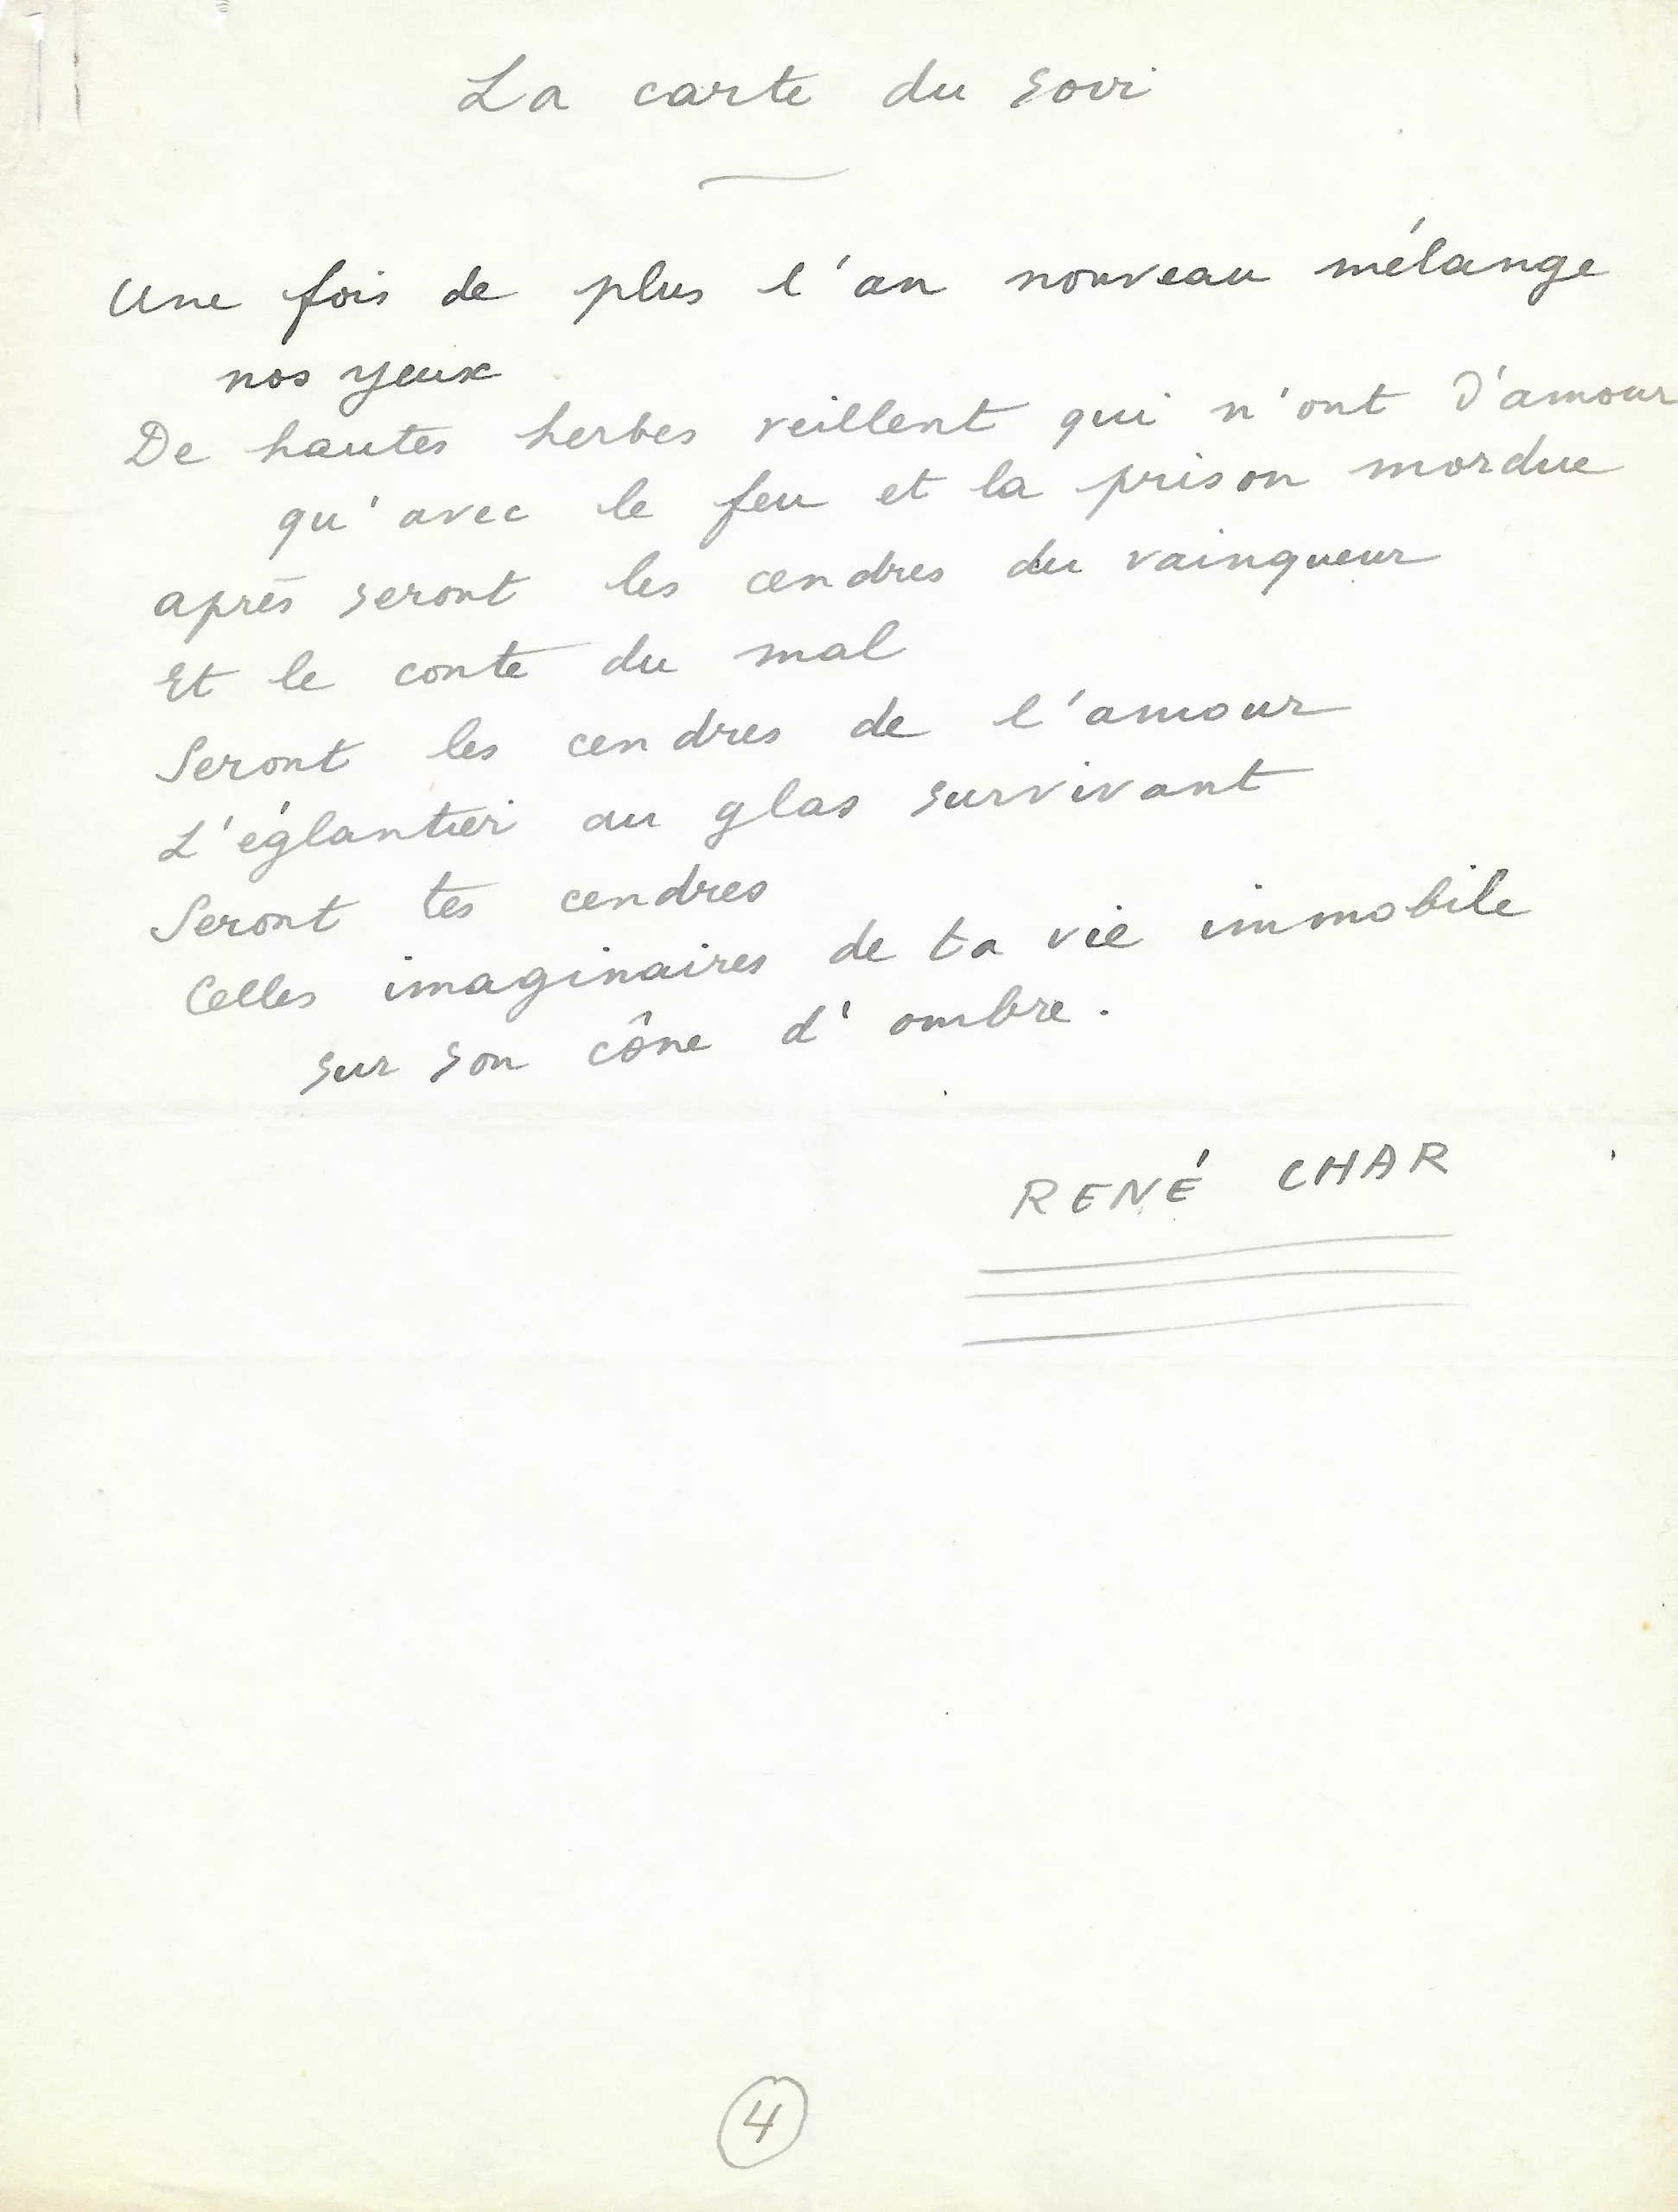 La carte du soir
Une fois de plus l'an nouveau mélange
nos yeux
De hautes herbes veillent qui n'ont d'amour
qu'avec le feu et la prison mordue
après seront les cendres du vainqueur
Et le conte du mal
Seront les cendres de l'amour
L'églantier au glas survivant
Seront tes cendres
Celles imaginaires de ta vie immobile
sur son cône d'ombre.
RENÉ CHAR
4